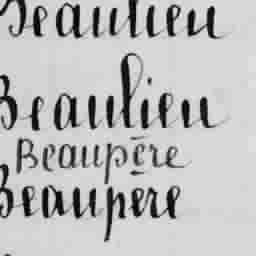 Beaulieu
Beaulieu
Beaupēre
Beaupere